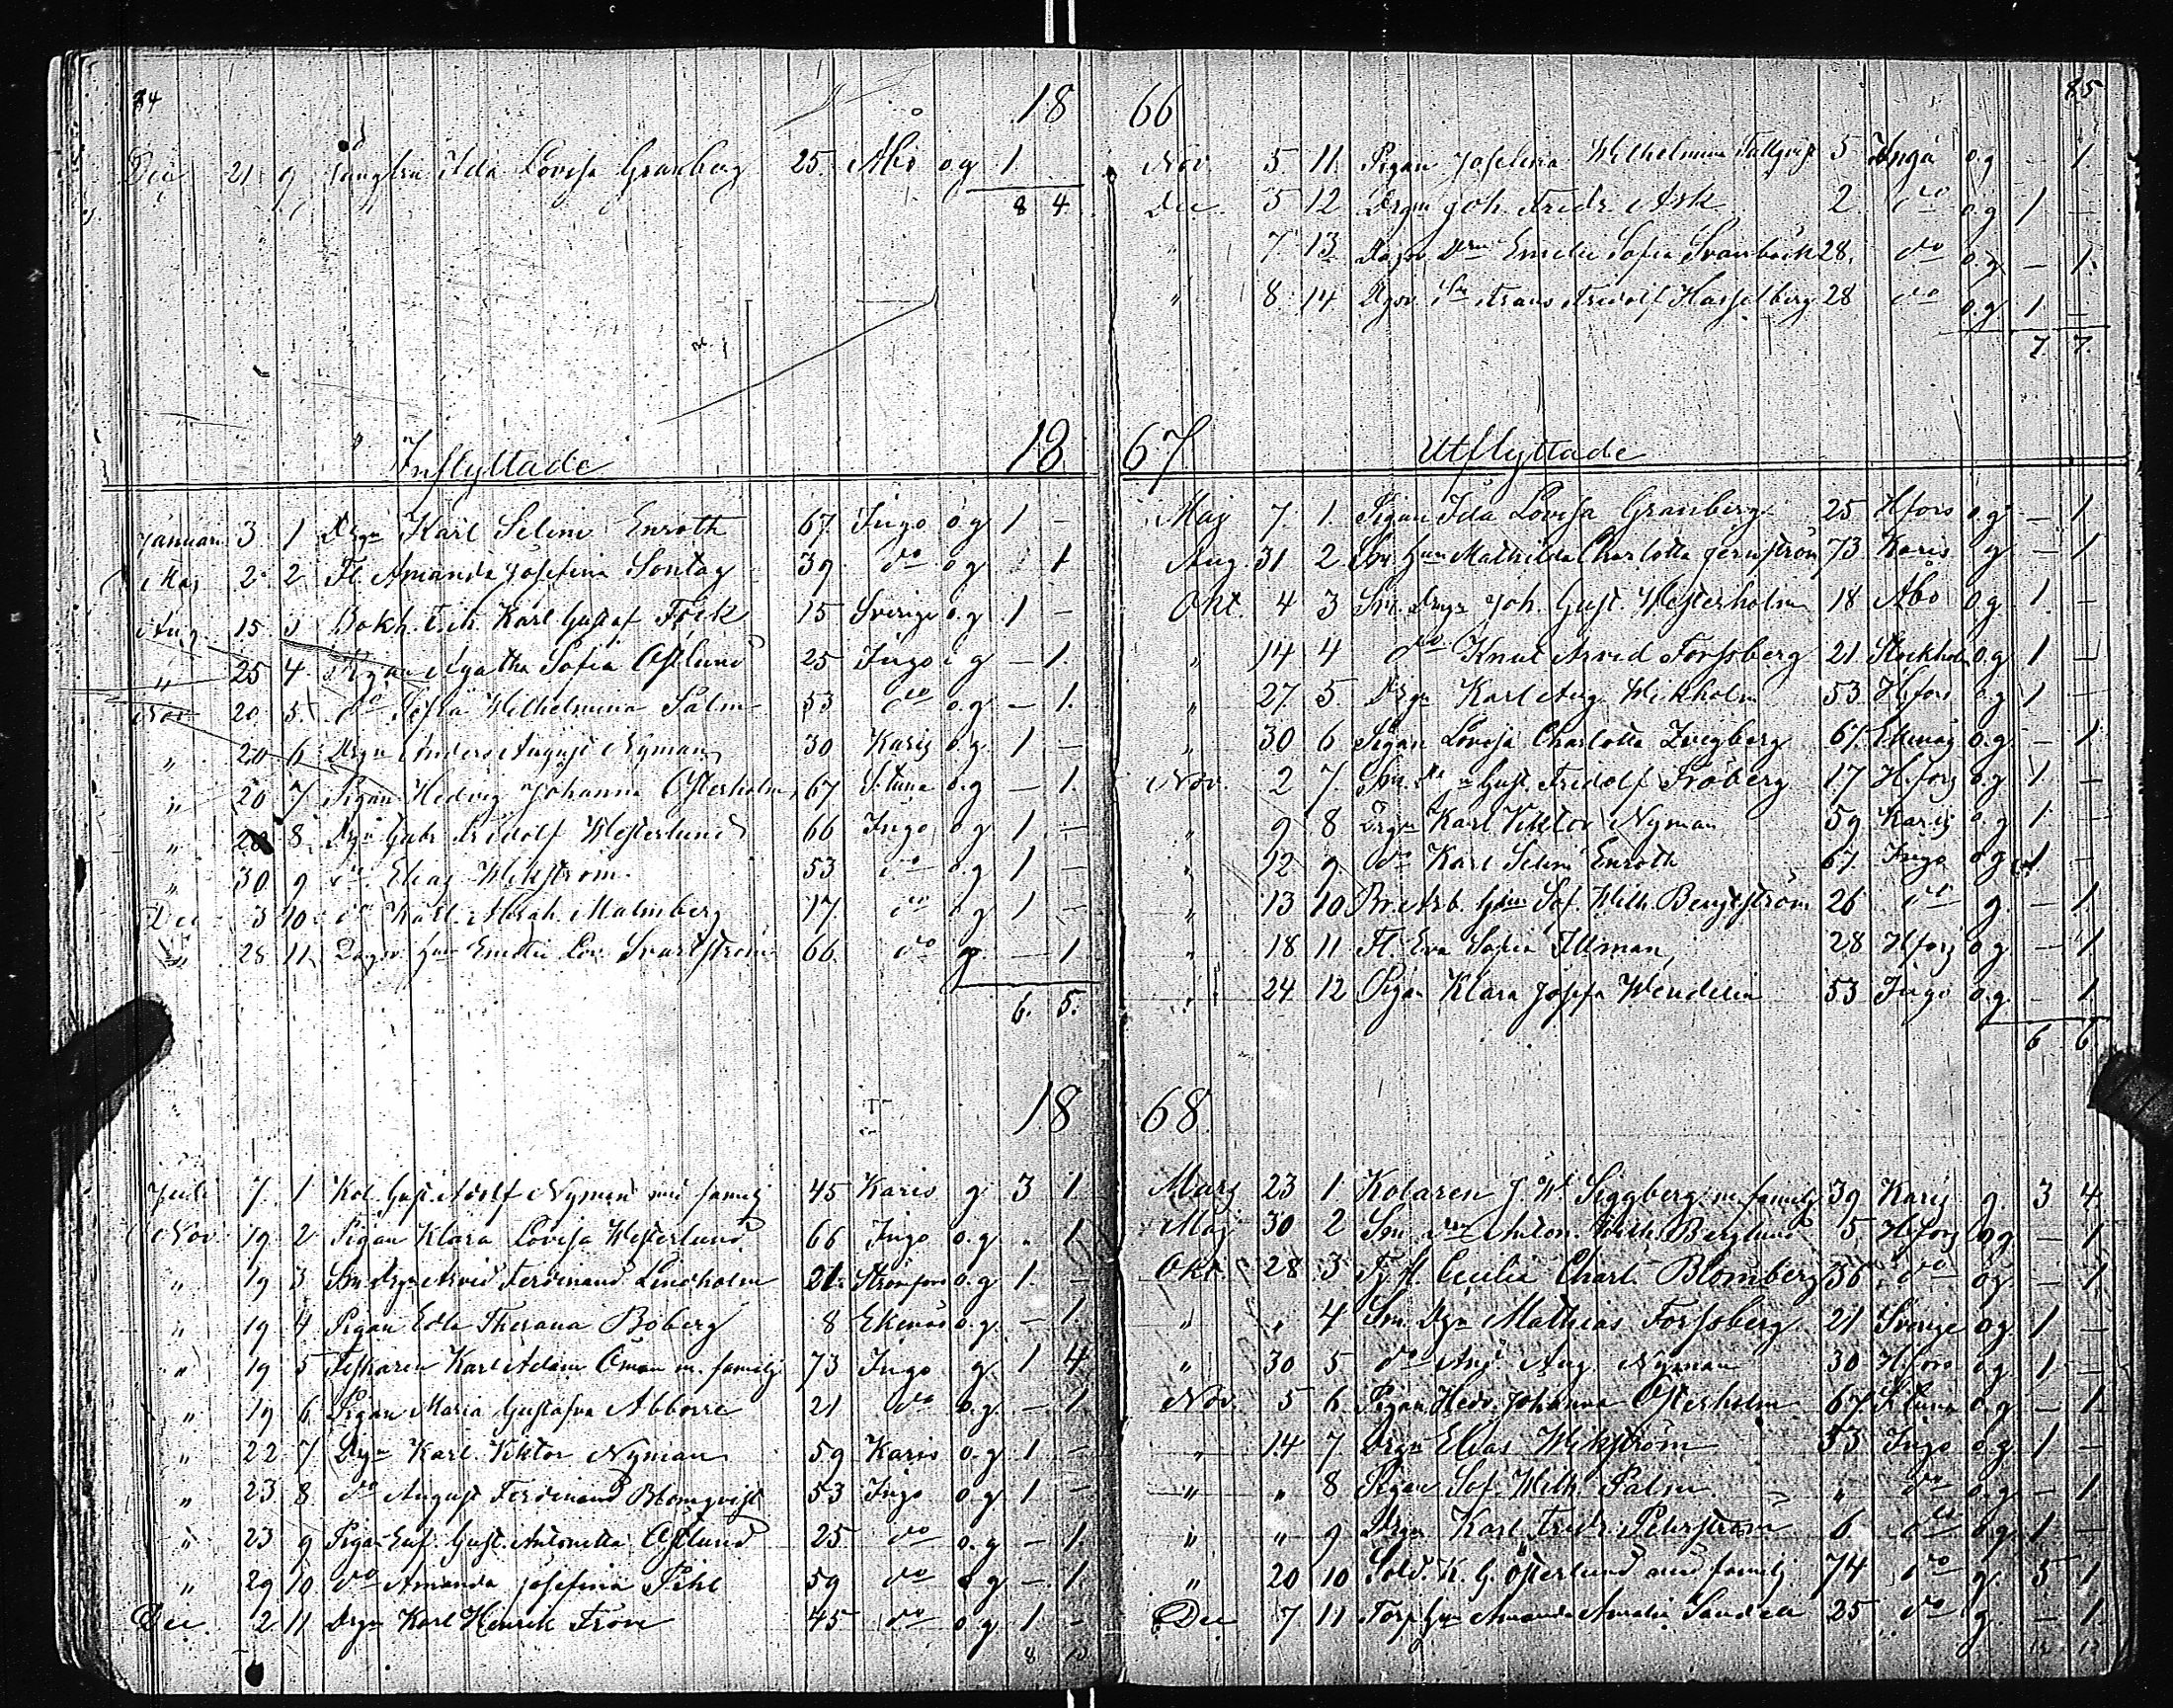 84
18
Dec 21 9 Jungfru Ida Lovisa Granberg 25 Åbo o.g 1
8 4
Inflyttade 18
Januari 3 1 Drgn Karl Selim Enroth 67 Ingo o.g 1 –
Maj 2 2 Fl. Amanda Josefina Sontag 39 do o.g 1
Aug 15 3 Bokh. Karl Gustaf Frick 15 Sverige o.g 1 –
" 25 4 Pigan Agatha Sofia Östlund 25 Ingo o.g – 1.
Nov 20 5 do Sofia Wilhelmina Palm 53 do o.g – 1.
" 20 6 Drgn Anders August Nyman 30 Karis o.g 1 –
" 20 7 Pigan Hedvig Johanna Österholm 67 S:tuna o.g – 1.
" 28 8 Drgn Gabr Fridolf Westerlund 66 Ingo o.g 1 –
" 30 9 do Elias Wikström 53 do o.g 1 –
Dec 3 10 do Karl Abrah. Malmberg 17 do o.g 1 –
" 28 11 Dagsv. hu Emelie Lov. Svartström 66 do g. – 1
6. 5.
18
Juli 7 1 Kol. Gust. Adolf Nyman med familj 45 Karis g 3 1
Nov 19 2 Pigan Klara Lovisa Westerlund 66 Ingo o.g " 1
" 19 3 Sm. Drgn Arvid Ferdinand Lindholm 21 Strömfors o.g 1. –
" 19 4 Pigan Edla Theresia Boberg 8 Ekenäs o.g. – 1.
" 19 5 Fiskaren Karl Adam Öman m. familj 73 Ingo g. 1 4
" 19 6 Pigan Maria Gustafva Abborre 21 do o.g. – 1
" 22 7 Drgn Karl Viktor Nyman 59 Karis o.g 1 –
" 23 8 do August Ferdinand Blomqvist 53 Ingo o.g 1 –
" 23 9 Pigan Euf. Gust. Antonetta Östlund 25 do o.g – 1.
" 29 10 do Amanda Josefina Pihl 59 do o.g – 1.
Dec 2 11 Drgn Karl Henrik From 45 do o.g 1 –
8 10
66 85
Nov. 5 11. Pigan Josefina Wilhelmina Tallqvist 5 Ingå o.g – 1.
Dec. 5 12 Drgn Joh. Fredr. Ask 2 do o.g 1 –
" 7 13 Dagsv. Drn Emelie Sofia Svanbäck 28. do o.g – 1.
" 8 14 Dgsv. Sn Frans Fridolf Hasselberg 28 do o.g 1 –
7. 7.
67 Utflyttade
Maj 7 1. Pigan Ida Lovisa Granberg 25 Hfors o.g – 1
Aug. 31 2 Sm. hun Mathilda Charlotta Jernström 73 Karis g – 1
Okt. 4 3 Sm. Drgn Joh. Gust. Westerholm 18 Åbo o.g 1. –
" 14 4 do Knut Arvid Forssberg 21 Stockholm o.g 1 –
" 27. 5. Drgn Karl Aug. Wickholm 53 Hfors o.g 1 –
" 30 6 Pigan Lovisa Charlotta Zweigberg 67. Ekenäs o.g. – 1
Nov. 2 7. Sm. Gust. Fridolf Fröberg 17 Hfors o.g 1. –
" 9 8 Drgn Karl Viktor Nyman 59 Karis o.g 1 –
" 12 9 do Karl Selim Enroth 67. Ingo o.g 1 –
" 13 10 Br. Arb. hun Sof. Wilh. Bengtström 26 do g. – 1
" 18 11 Fl. Eva Sofia Illman 28 Hfors o.g – 1.
" 24 12 Pigan Klara Josefa Wendelin 53 Ingo o.g. – 1
6 6
68
Mars 23 1 Kolaren J. W. Siggberg m. familj 39 Karis g. 3 4.
Maj 30 2 Sm. Anton. Wilh. Berglund 5 Hfors o.g – 1
Okt. 28 3 Fl. Cecilia Charl. Blomberg 36 do o.g – 1
" " 4 Sm. Drgn Mathias Forssberg 21 Sverige o.g 1 –
" 30 5 do And. Aug. Nyman 30 Hfors o.g 1 –
Nov. 5 6 Pigan Hedv. Johanna Österholm 67 S:tuna o.g – 1.
" 14 7 Drgn Elias Wikström 53 Ingo o.g. 1 –
" " 8 Pigan Sof. Wilh. Palm " do o.g. – 1
" " 9 Drgn Karl Fredr. Peterström 6 do o.g. 1 –
" 20 10 Sold. K. G. Österlund med familj 74 do g. 5 1
Dec 7 11 Torp. hu Amanda Amalia Sandell 25 do g. – 1.
12 12